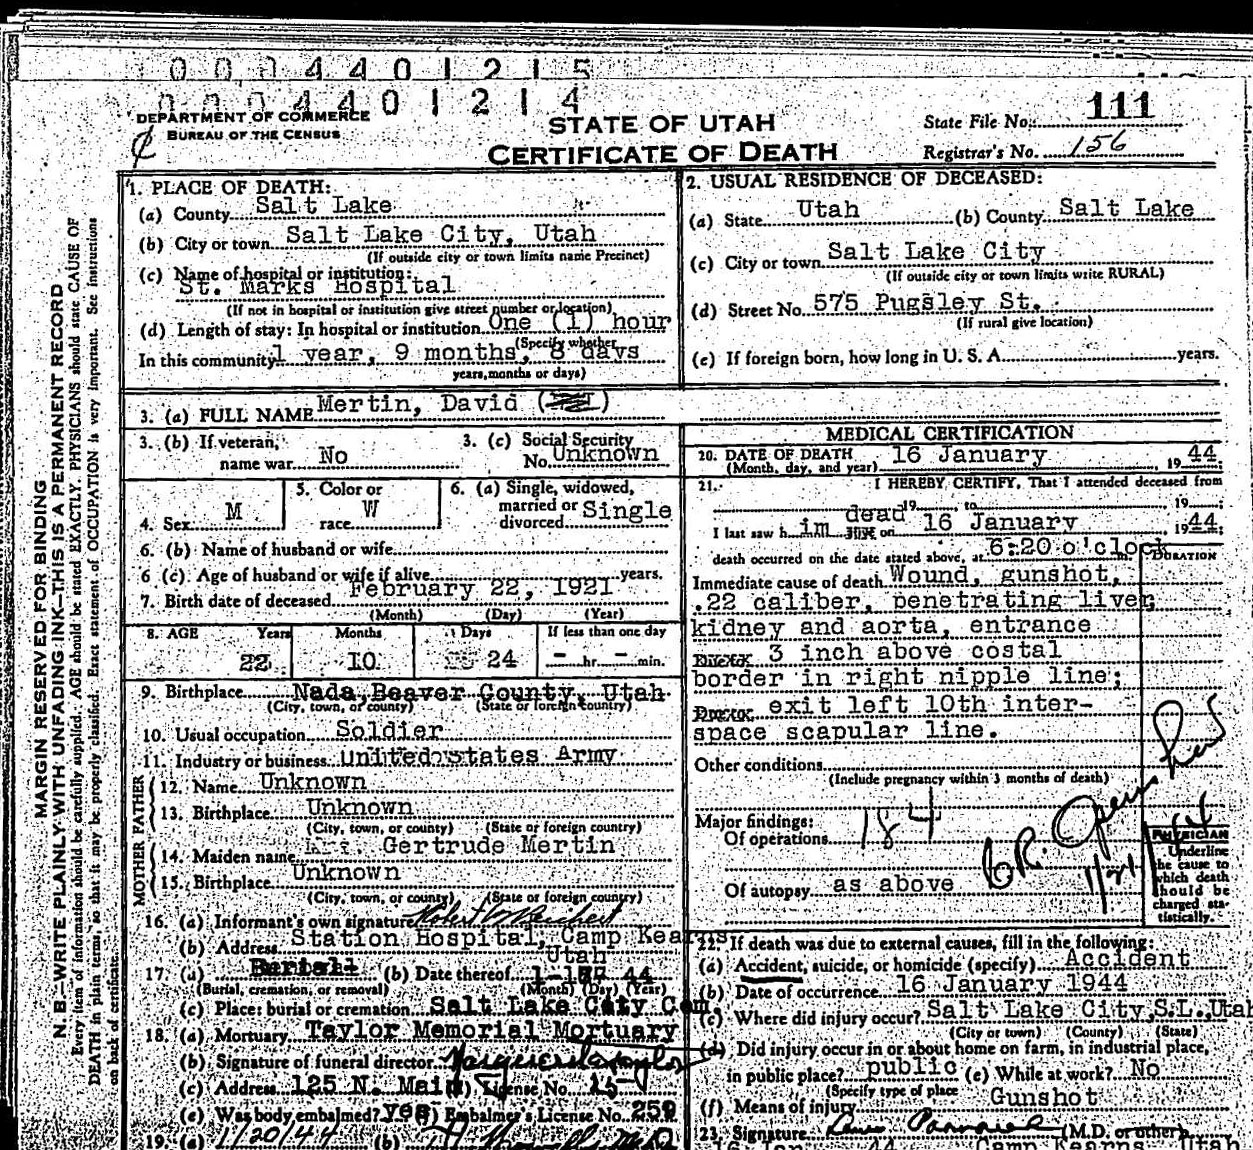 0004401215
0004401214
DEPARTMENT OF COMMERCE
BUREAU OF THE CENSUS
STATE OF UTAH
CERTIFICATE OF DEATH
State File No. 111
Registrar's No. 156
MARGIN RESERVED FOR BINDING
N. B.—WRITE PLAINLY WITH UNFADING INK—THIS IS A PERMANENT RECORD
Every item of information should be carefully supplied. AGE should be stated EXACTLY. PHYSICIANS should state CAUSE OF
DEATH in plain terms, so that it may be properly classified. Exact statement of OCCUPATION is very important. See instructions
on back of certificate.
1. PLACE OF DEATH:
(a) County Salt Lake
(b) City or town Salt Lake City, Utah
(If outside city or town limits name Precinct)
(c) Name of hospital or institution:
St. Marks Hospital
(If not in hospital or institution give street number or location)
(d) Length of stay: In hospital or institution One (1) hour
(Specify whether
In this community 1 year, 9 months, 8 days
years, months or days)
2. USUAL RESIDENCE OF DECEASED:
(a) State Utah (b) County Salt Lake
(c) City or town Salt Lake City
(If outside city or town limits write RURAL)
(d) Street No. 575 Pugsley St.
(If rural give location)
(e) If foreign born, how long in U. S. A. years.
3. (a) FULL NAME Mertin, David
3. (b) If veteran, name war No
3. (c) Social Security No. Unknown
4. Sex M
5. Color or race W
6. (a) Single, widowed, married or divorced Single
6. (b) Name of husband or wife
6 (c). Age of husband or wife if alive years.
7. Birth date of deceased February 22, 1921
(Month) (Day) (Year)
8. AGE Years Months Days If less than one day
22 10 24 - hr. - min.
9. Birthplace Nada, Beaver County, Utah
(City, town, or county) (State or foreign country)
10. Usual occupation Soldier
11. Industry or business United States Army
FATHER
12. Name Unknown
13. Birthplace Unknown
(City, town, or county) (State or foreign country)
MOTHER
14. Maiden name Gertrude Mertin
15. Birthplace Unknown
(City, town, or county) (State or foreign country)
16. (a) Informant's own signature Robert
(b) Address Station Hospital, Camp Kearns
Utah
17. (a) Burial (b) Date thereof 44
(Burial, cremation, or removal) (Month) (Day) (Year)
(c) Place: burial or cremation Salt Lake City Cem.
18. (a) Mortuary Taylor Memorial Mortuary
(b) Signature of funeral director
(c) Address 125 N. Main License No. 15
(e) Was body embalmed? yes Embalmer's License No. 259
19. (a) 1/20/44 (b) M.D.
MEDICAL CERTIFICATION
20. DATE OF DEATH 16 January, 1944
(Month, day, and year)
21. I HEREBY CERTIFY, That I attended deceased from
19 , to , 19
I last saw him dead on 16 January, 1944
death occurred on the date stated above, at 6:20 o'clock
DURATION
Immediate cause of death Wound, gunshot,
.22 caliber, penetrating liver,
kidney and aorta, entrance
3 inch above costal
border in right nipple line;
exit left 10th inter-
space scapular line.
Other conditions
(Include pregnancy within 3 months of death)
Major findings:
Of operations 184
Of autopsy as above
PHYSICIAN
Underline
the cause to
which death
should be
charged sta-
tistically.
22. If death was due to external causes, fill in the following:
(a) Accident, suicide, or homicide (specify) Accident
(b) Date of occurrence 16 January 1944
(c) Where did injury occur? Salt Lake City, S.L., Utah
(City or town) (County) (State)
(d) Did injury occur in or about home on farm, in industrial place,
in public place? public (e) While at work? No
(Specify type of place)
(f) Means of injury Gunshot
23. Signature (M.D. or other)
16 Jan 44 Camp Kearns Utah